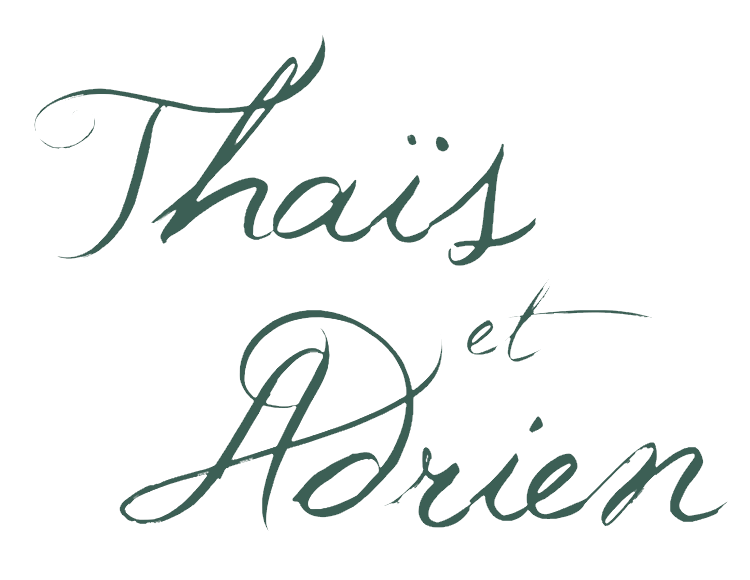 Thaïs
et
Adrien